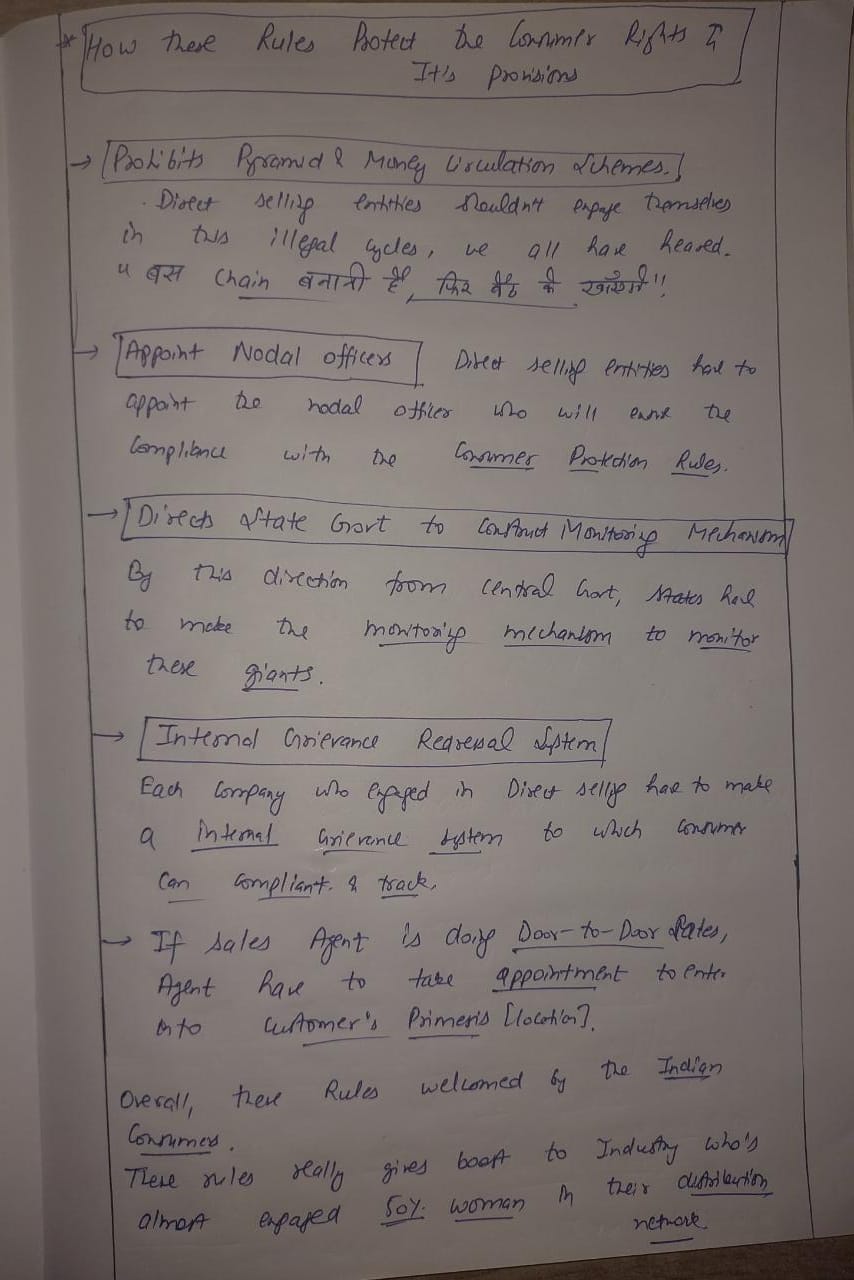 * How these Rules Protect the Consumer Rights &
It's Provisions
→ Prohibits Pyramid & Money Circulation Schemes.
. Direct selling entities shouldn't engage themselves
in this illegal cycles, we all have heared.
"बस chain बनानी है, फिर बैठ के खाएंगे"!
→ Appoint Nodal officers Direct selling entities have to
appoint the nodal officer who will ensure the
Compliance with the Consumer Protection Rules.
→ Directs State Govt to Construct Monitoring Mechanism
By this direction from central Govt, states have
to make the monitoring mechanism to monitor
these giants.
→ Internal Grievance Redressal System
Each Company who engaged in Direct selling have to make
a internal Grievance system to which consumer
can compliant. & track.
→ If sales Agent is doing Door-to-Door Sales,
Agent have to take appointment to enter
into customer's Primeris [location].
Overall, these Rules welcomed by the Indian
Consumers.
These rules really gives boost to Industry who's
almost engaged 50% woman in their distribution
network